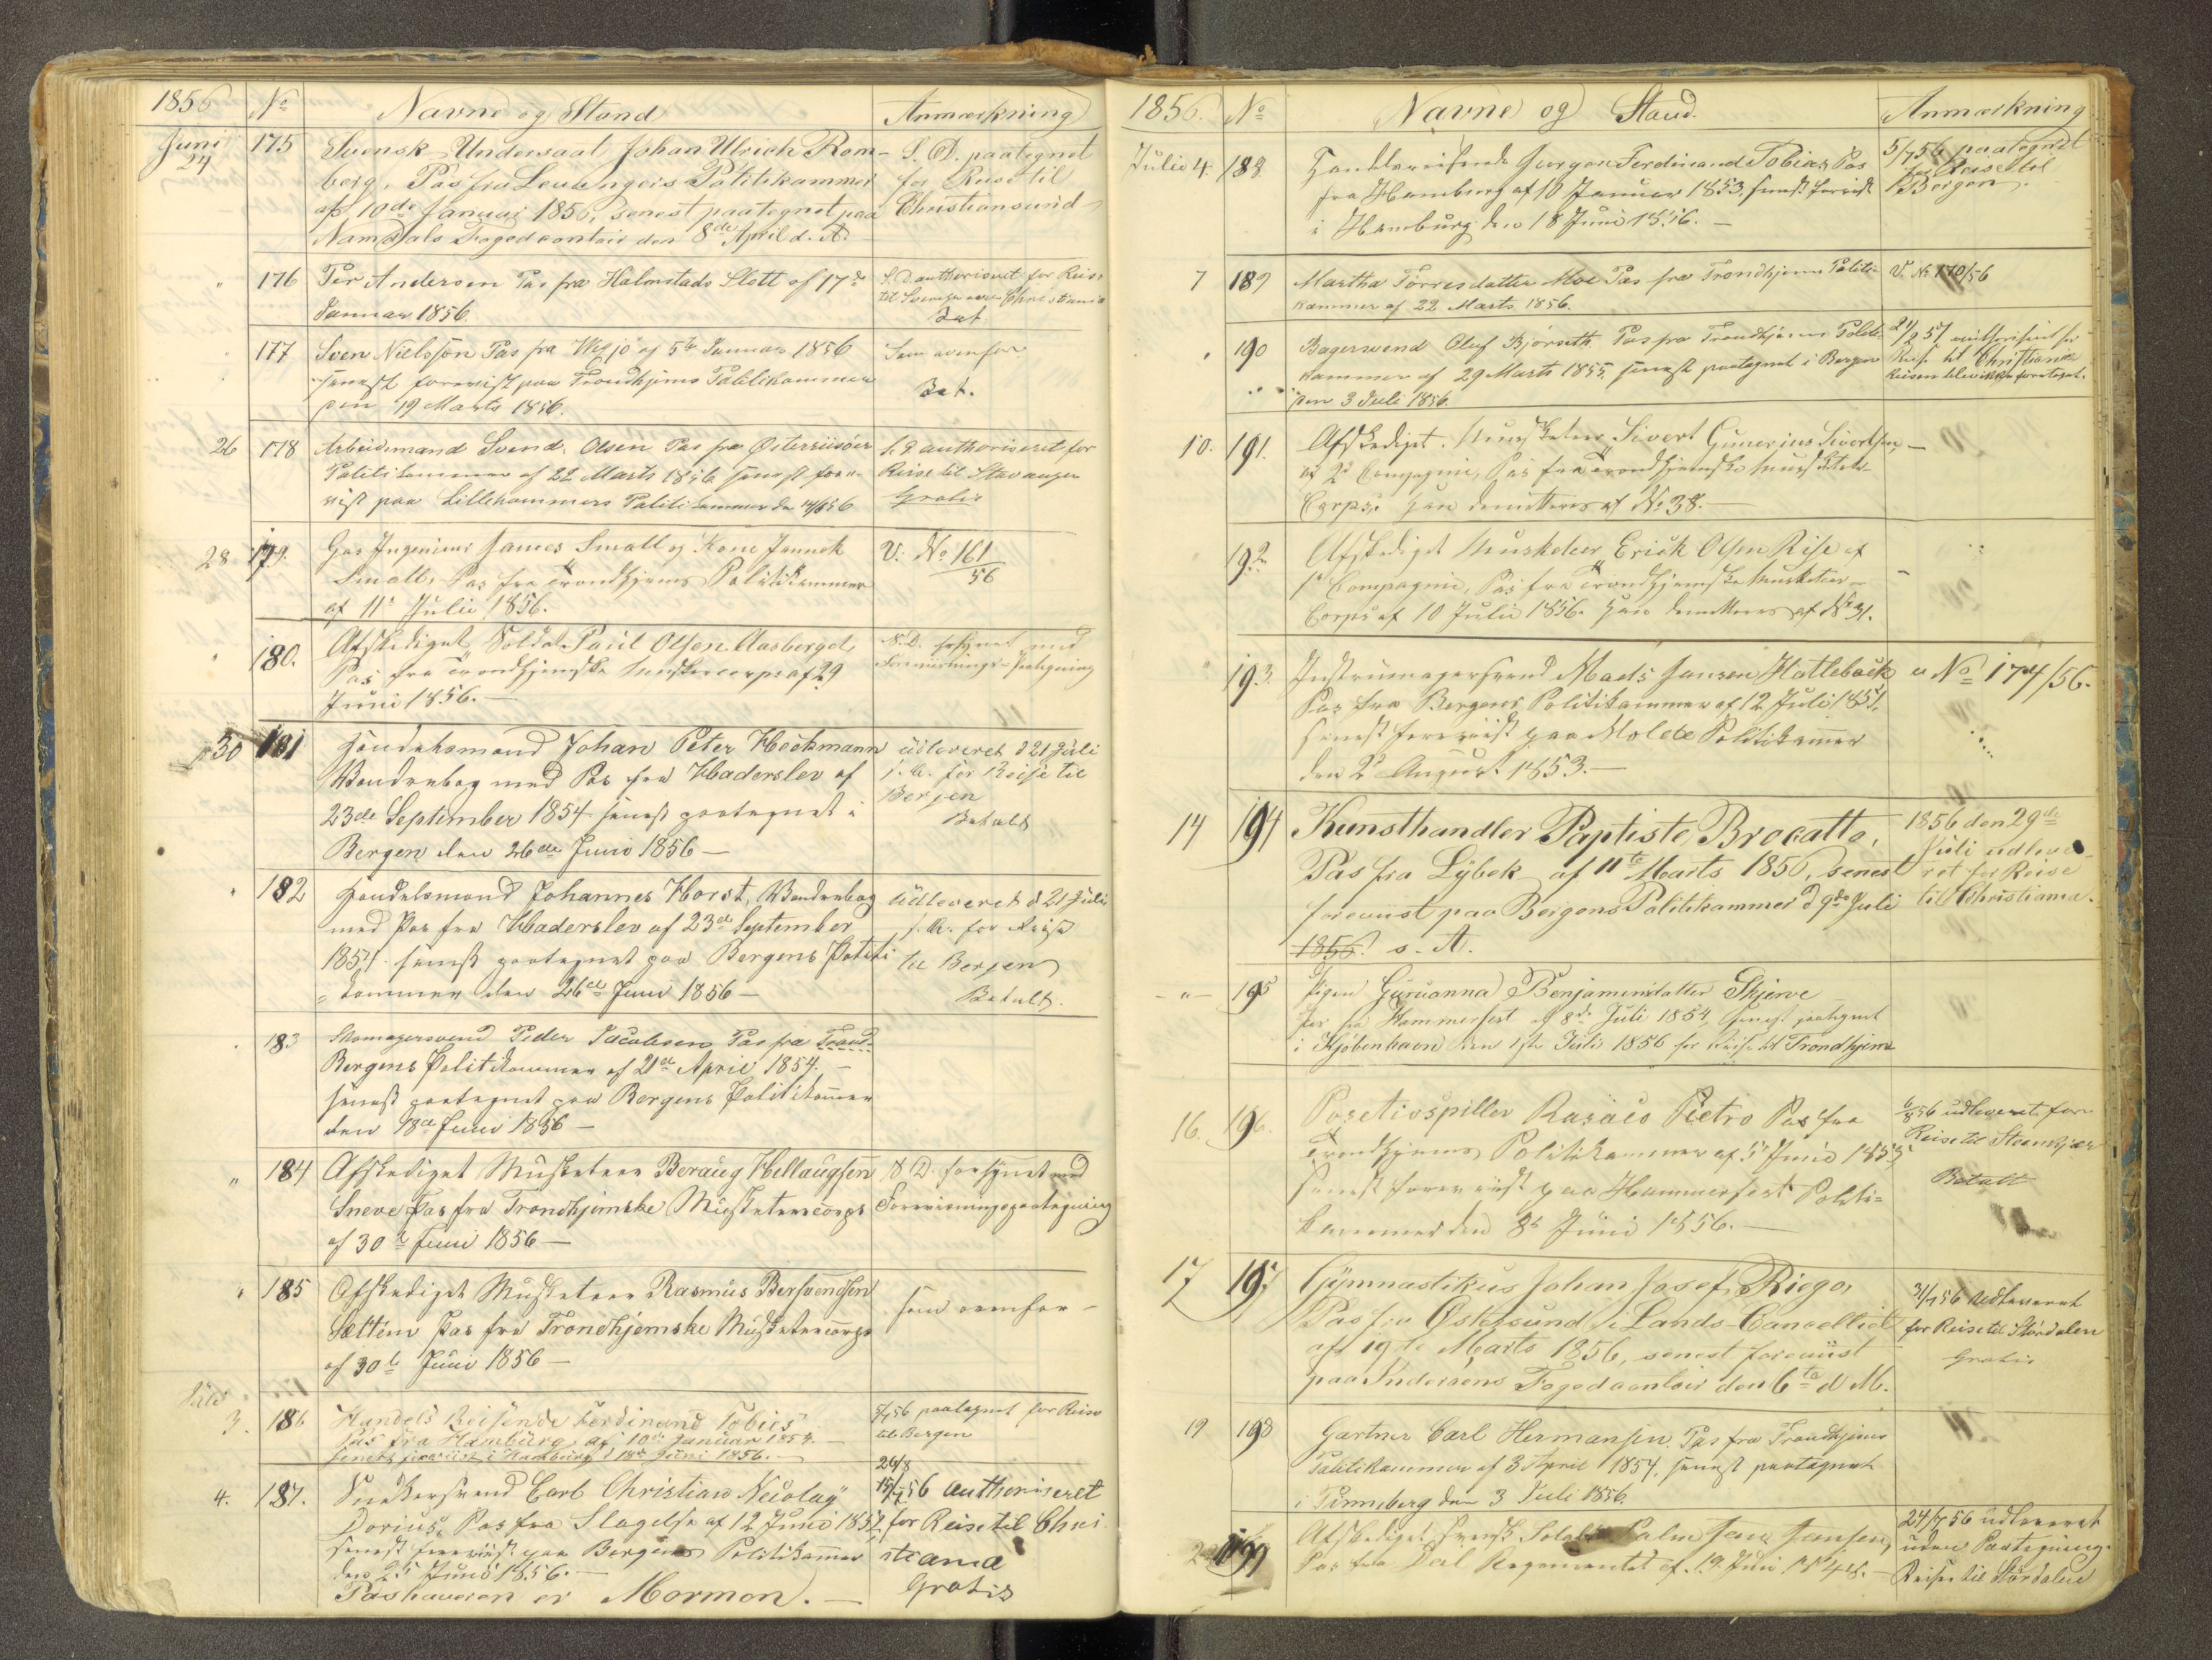 1856 No Navne og Stand Anmærkning
Juni 24 175 Svensk Undersaat Johan Ulrich Rom-
berg, Pas fra Levangers Politikammer
af 10de Januar 1856, senest paategnet paa
Namdals Fogedcontoir den 8de April d. A.
S. D. paategnet
for Reise til
Christiansund
" 176 Per Andersen Pas fra Halmstads Slott af 17de
Januar 1856.
S. D. authoriseret for Reise
til Sverige over Christiania
Bet.
" 177 Sven Nielsson Pas fra Wexjö af 5te Januar 1856
senest forevist paa Trondhjems Politikammer
den 19 Marts 1856.
Som ovenfor
Bet.
26 178 Arbeidsmand Svend Olsen Pas fra Østerriisöer
Politikammer af 22 Marts 1856 senest fore-
vist paa Lillehammers Politikammer den 14/6 56
S. D. authoriseret for
Reise til Stavanger
Gratis
28 179. Gas Ingenieur James Small og Kone Jannek
Small, Pas fra Trondhjems Politikammer
af 11te Julii 1856.
V. No 161/56
" 180. Afskediget Soldat Paul Olsen Aasberget,
Pas fra Trondhjemske af 29
Juni 1856. —
S. D. forsynet med
Forevisnings-Paategning
30 181 Handelsmand Johan Peter Heckmann
Vandrebog med Pas fra Haderslev af
23de September 1854 senest paategnet i
Bergen den 26de Juni 1856 —
Udleveret d 21 Juli
s. A. for Reise til
Bergen
Betalt
" 182 Handelsmand Johannes Horst, Vandrebog
med Pas fra Haderslev af 23de September
1854 senest paategnet paa Bergens Politi
= kammer den 26de Juni 1856 —
Udleveret d 21 Juli
s. A. for Reise
til Bergen
Betalt.
" 183 Skomagersvend Peder Jacobsen Pas fra Trond-
Bergens Politikammer af 21de April 1854. —
senest paategnet paa Bergens Politikammer
den 18de Juni 1856 —
" 184 Afskediget Musketeer Beraug Hellaugsen
Sneve Pas fra Trondhjemske Musketeercorps
af 30te Juni 1856 —
S. D. forsynet med
Forevisningspaategning
" 185 Afskediget Musketeer Rasmus Bersvendsen
Sættem Pas fra Trondhjemske Musketeercorps
af 30te Juni 1856 —
som ovenfor —
Julii 3. 186 Handels Reisende Ferdinand Tobies
Pas fra Hamburg, af 10de Januar 1854. —
senest foreviist i Hamburg d 18de Juni 1856. —
5/7 56 paategnet for Reise
til Bergen
4. 187. Snekkersvend Carl Christian Nicolay
Dorius, Pas fra Slagelse af 12 Juni 1852,
senest foreviist paa Bergens Politikammer
den 25 Juni 1856. —
Pashaveren er Mormon. —
26/8
15/7 56 authoriseret
for Reise til Chri-
stiania
Gratis
1856. No Navne og Stand. Anmærkning
Julii 4. 188. Handelsreisende Georgon Ferdinand Tobias Pas
fra Hamburg af 10 Januar 1853, senest forevist
i Hamburg den 18 Juni 1856. —
5/7 56 paategnet
for Reise til
Bergen.
7 189 Martha Törresdatter Moe Pas fra Trondhjems Politi-
kammer af 22 Marts 1856.
V. No 170/56
" 190 Bagersvend Oluf Bjørseth Pas fra Trondhjems Politi-
kammer af 29 Marts 1855, senest paategnet i Bergen
den 3 Juli 1856.
21/2 57 authoriseret for
Reise til Christiania
Reisen blev ikke foretaget.
10. 191. Afskediget Musketeer Sivert Gunerius Sivertsen, —
af 2de Compagnie, Pas fra Trondhjemske Musketeer
Corps. han demitteres af No 38. —
" 192 Afskediget Musketeer Erick Olsen Rise af
1ste Compagnie, Pas fra Trondhjemske Musketeer-
Corps af 10 Julii 1856. han demitteres af No 31.
—
" 193. Instrumagersvend Mads Jansen Hatleback
Pas fra Bergens Politikammer af 12 Juli 1851,
senest foreviist paa Molde Politikammer
den 2de August 1853. —
v No 174/56.
14 194 Kunsthandler Paptiste Brocatto,
Pas fra Lÿbek af 11te Marts 1856, senest
foreviist paa Bergens Politikammer d 9de Juli
1856. s. A.
1856 den 29de
Juli udleve-
ret for Reise
til Christiania.
— " — 195 Pigen Guruanna Benjaminsdatter Skjerve
Pas fra Hammerfest af 8de Juli 1854, senest paategnet
i Kjöbenhavn den 1ste Juli 1856 for Reise til Trondhjem
16. 196. Posetivspiller Rasaco Pietro Pas fra
Trondhjems Politikammer af 5te Juni 1855,
senest foreviist paa Hammerfest Politi-
kammer den 8de Juni 1856. —
6/8 56 udleveret for
Reise til Steenkjær
Betalt
17 197 Gymnastikus Johan Josef Riego,
Pas fra Østersund's Lands-Cancelliet
af 19de Marts 1856, senest foreviist
paa Inderøens Fogedcontoir den 6te d. M.
31/7 56 Udleveret
for Reise til Stördalen
Gratis
19 198 Gartner Carl Hermansen Pas fra Trondhjems
Politikammer af 3 April 1854, senest paategnet
i Pinneberg den 3 Juli 1856.
199 Afskediget svensk Soldat Palm Jansen,
Pas fra Dal Regementet af 19 Juni 1848. —
24/7 56 udleveret
uden Paategning.
Reiser til Stördalen